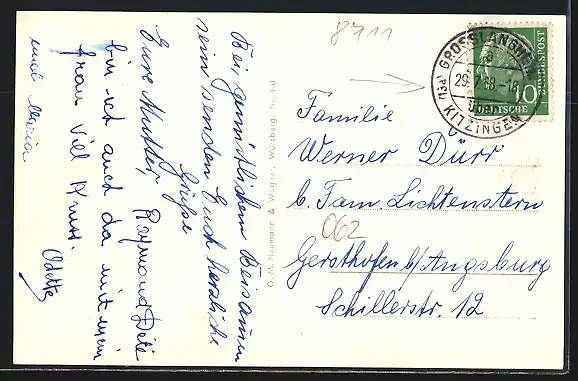 8711
Bei gemütlichem Beisamm
sein senden Euch herzliche
Grüße
Eure Mutter, Raymund Dete
bin ich auch da mit mein
frau viel
Odette
und Maria
O. M. Neumann & Wagner, Würzburg.
GROSSLANGHEIM
(13a)
29.7.58.-18
über
KITZINGEN
10
BUNDESPOST
DEUTSCHE
Familie
Werner Dürr
b. Fam. Lichtenstern
062
Gersthofen b/Augsburg
Schillerstr. 12